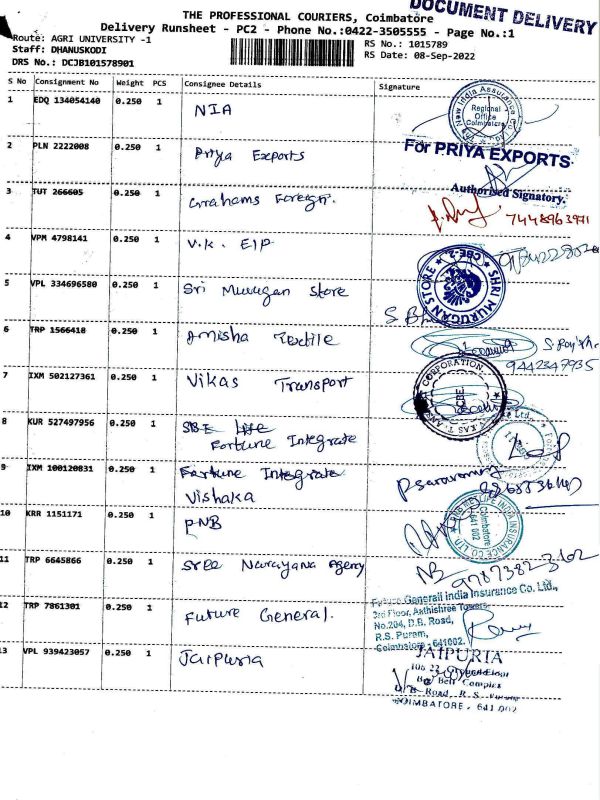 DOCUMENT DELIVERY
THE PROFESSIONAL COURIERS, Coimbatore
Delivery Runsheet - PC2 - Phone No.:0422-3505555 - Page No.:1
Route: AGRI UNIVERSITY -1
Staff: DHANUSKODI
DRS No.: DCJB101578901
RS No.: 1015789
RS Date: 08-Sep-2022
S No Consignment No Weight PCS Consignee Details Signature
1 EDQ 134054140 0.250 1 NIA
New India Assurance Co.
Regional
Office
Coimbatore
2 PLN 2222008 0.250 1 Priya Exports
For PRIYA EXPORTS
Authorised Signatory.
3 TUT 266605 0.250 1 Grahams Foreign.
7448963971
4 VPM 4798141 0.250 1 V.K. EIP
5 VPL 334696580 0.250 1 Sri Murugan Store
SHRI MURUGAN STORE CBE-2
6 TRP 1566418 0.250 1 Amisha Textile
9442347935
7 IXM 502127361 0.250 1 Vikas Transport
CORPORATION
CBE.
8 KUR 527497956 0.250 1 SBI Life
Fortune Integrate
9 IXM 100120831 0.250 1 Fortune Integrate
Vishaka
10 KRR 1151171 0.250 1 PNB
INDIA INSURANCE CO LTD
Coimbatore
641 002
11 TRP 6645866 0.250 1 Sree Narayana Agency
12 TRP 7861301 0.250 1 Future General.
Future Generali India Insurance Co. Ltd.,
3rd Floor, Aathishree Towers,
No.204, D.B. Road,
R.S. Puram,
Coimbatore - 641002.
13 VPL 939423057 0.250 1 Jaipuria
JAIPURIA
D. B. Road, R. S. Puram
COIMBATORE - 641 002